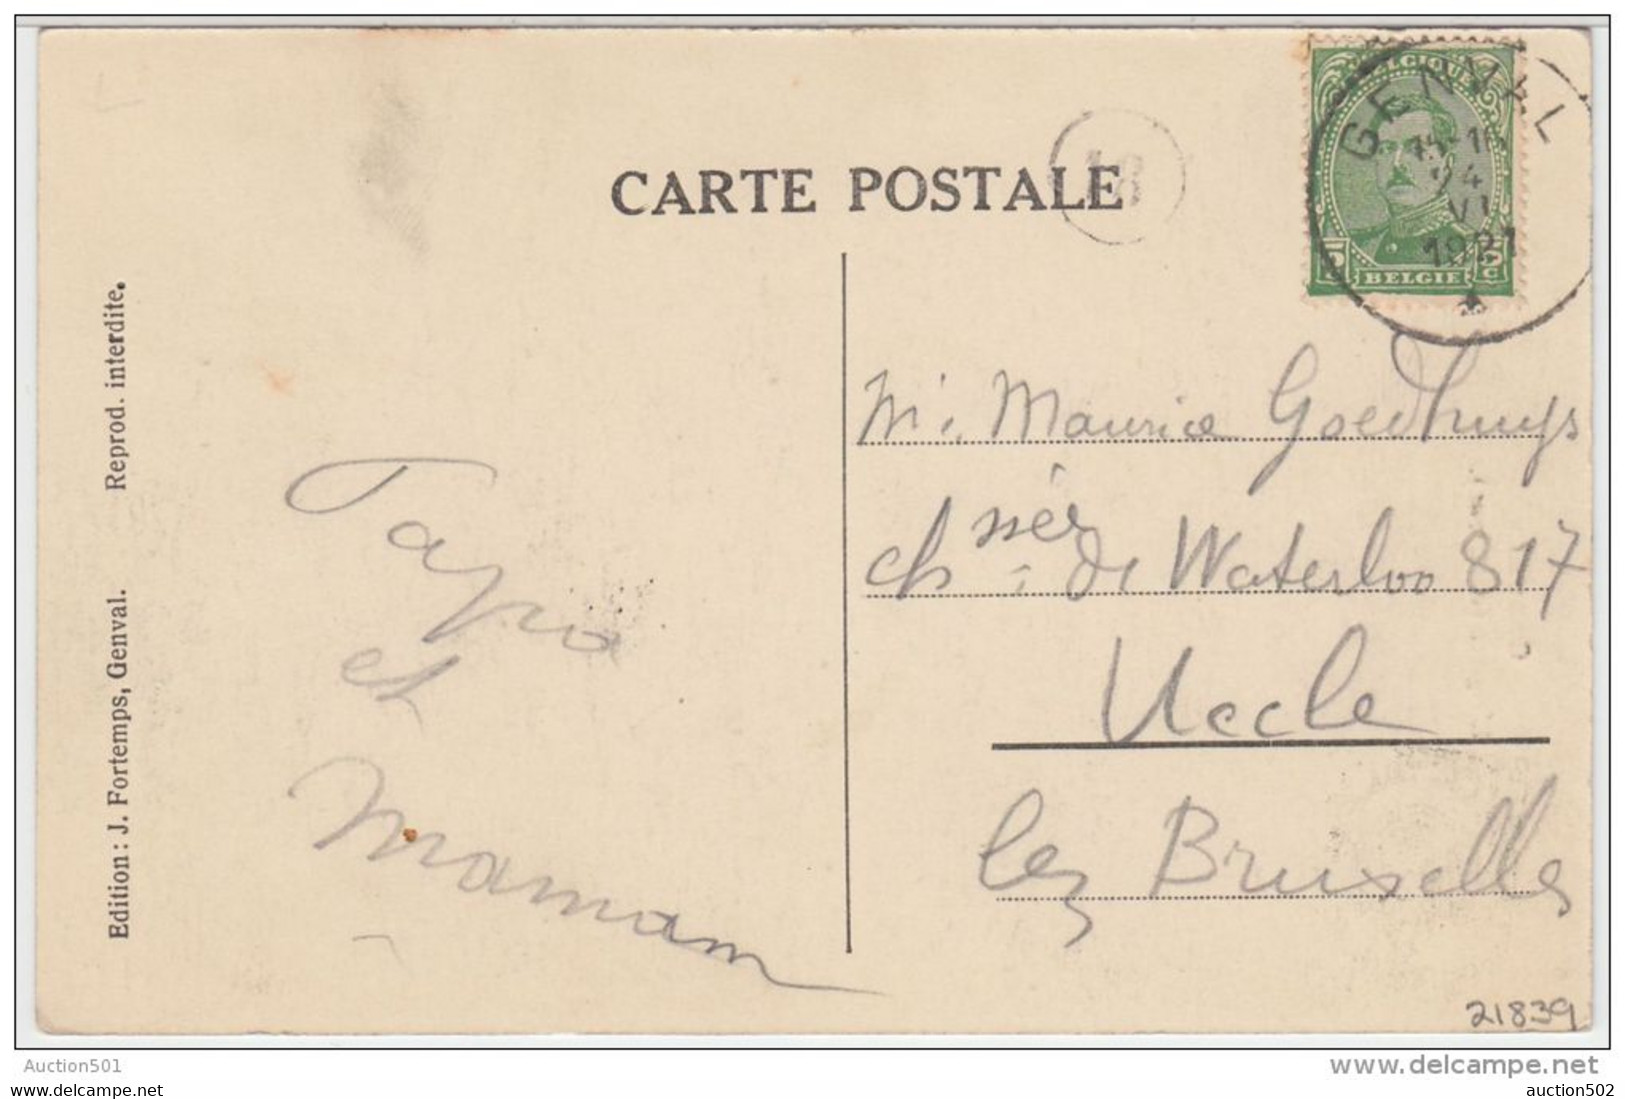 CARTE POSTALE
18
GENVAL
24
VI
1921
BELGIQUE
5 5c
BELGIE
Reprod. interdite.
Edition: J. Fortemps, Genval.
Papa
et
maman
Mr. Maurice Goedhuys
chssée de Waterloo 817
Uccle
lez Bruxelles
21839
Auction501
www.delcampe.net
auction502